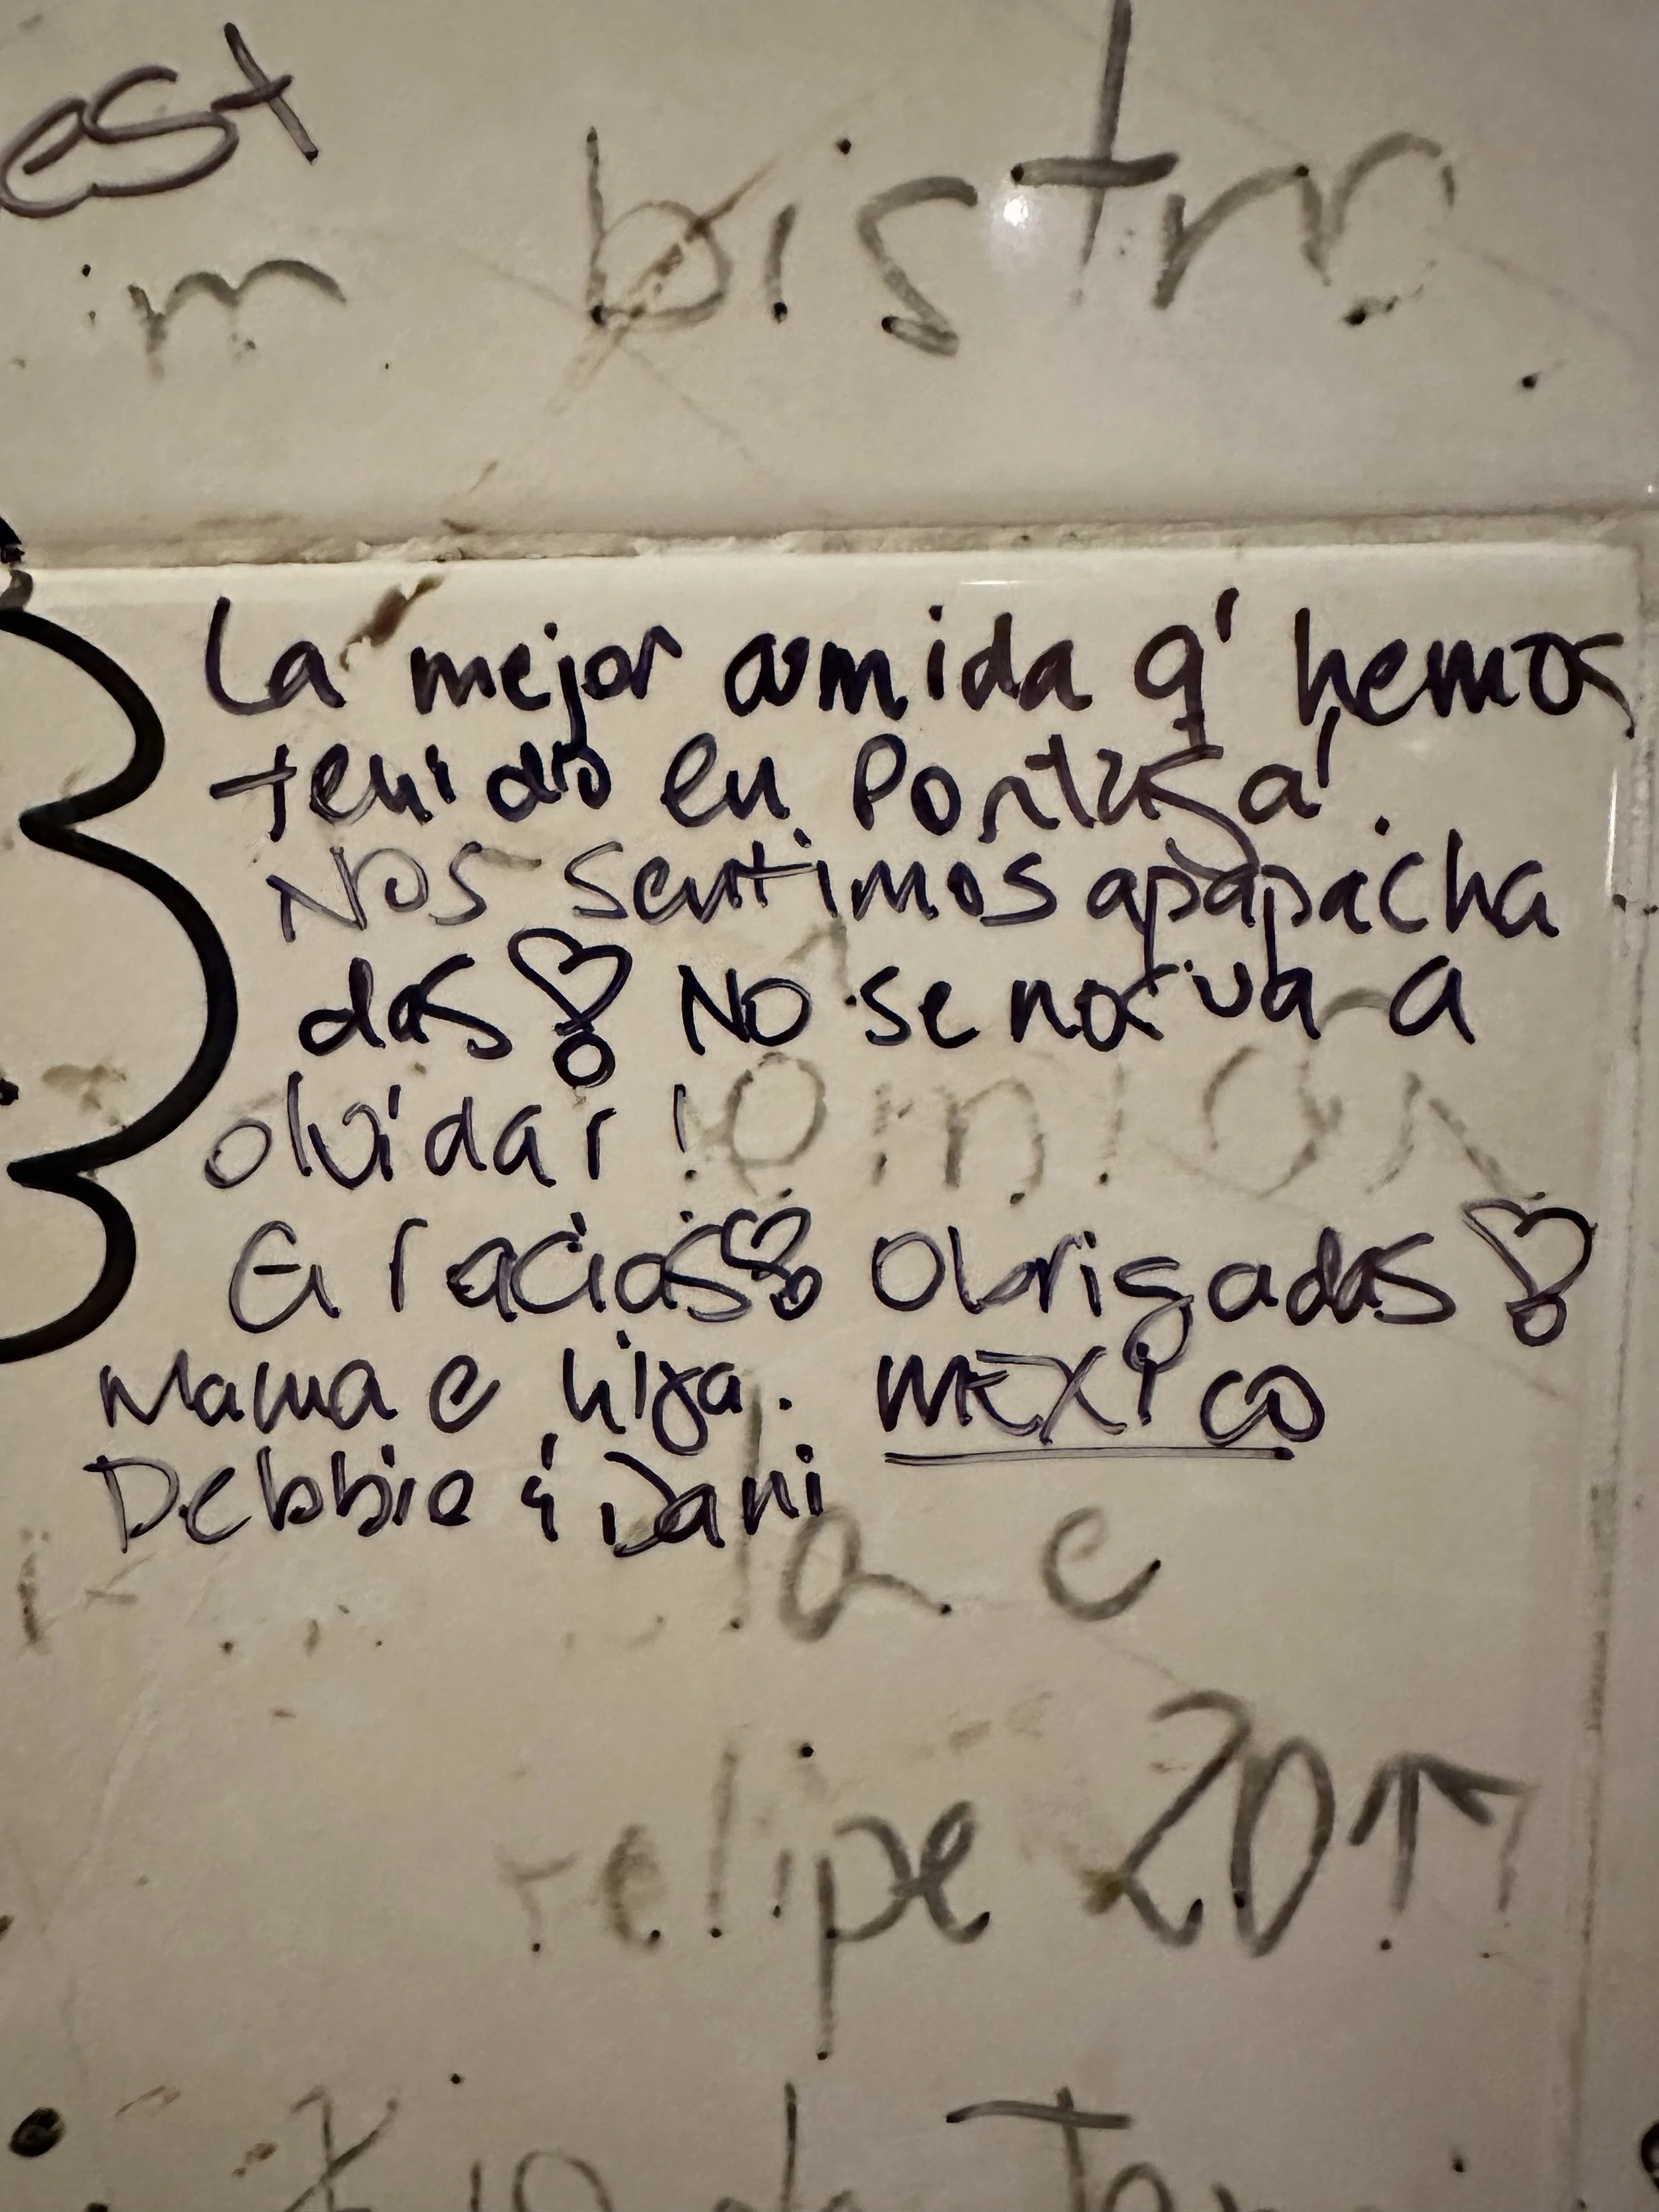 est
bistro
La mejor comida q' hemos
tenido en Portugal.
Nos sentimos apapacha
das! No se nos va a
olvidar!
Gracias! Obrigadas!
Mama e hija. MEXICO
Debbie & Dani
la e
felipe 2017